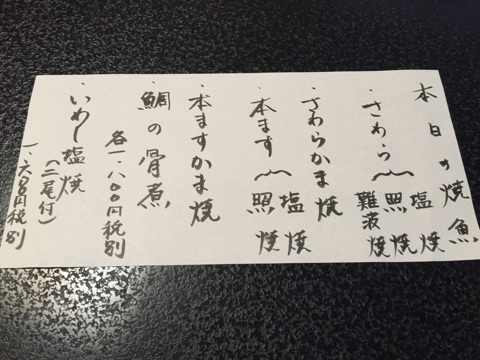 本日の焼魚
・さわら〔塩焼
照焼
難波焼
・さわらかま焼
・本ます〔塩焼
照焼
・本ますかま焼
・鯛の骨煮
各一、八〇〇円税別
・いわし塩焼
(二尾付)
一、六〇〇円税別